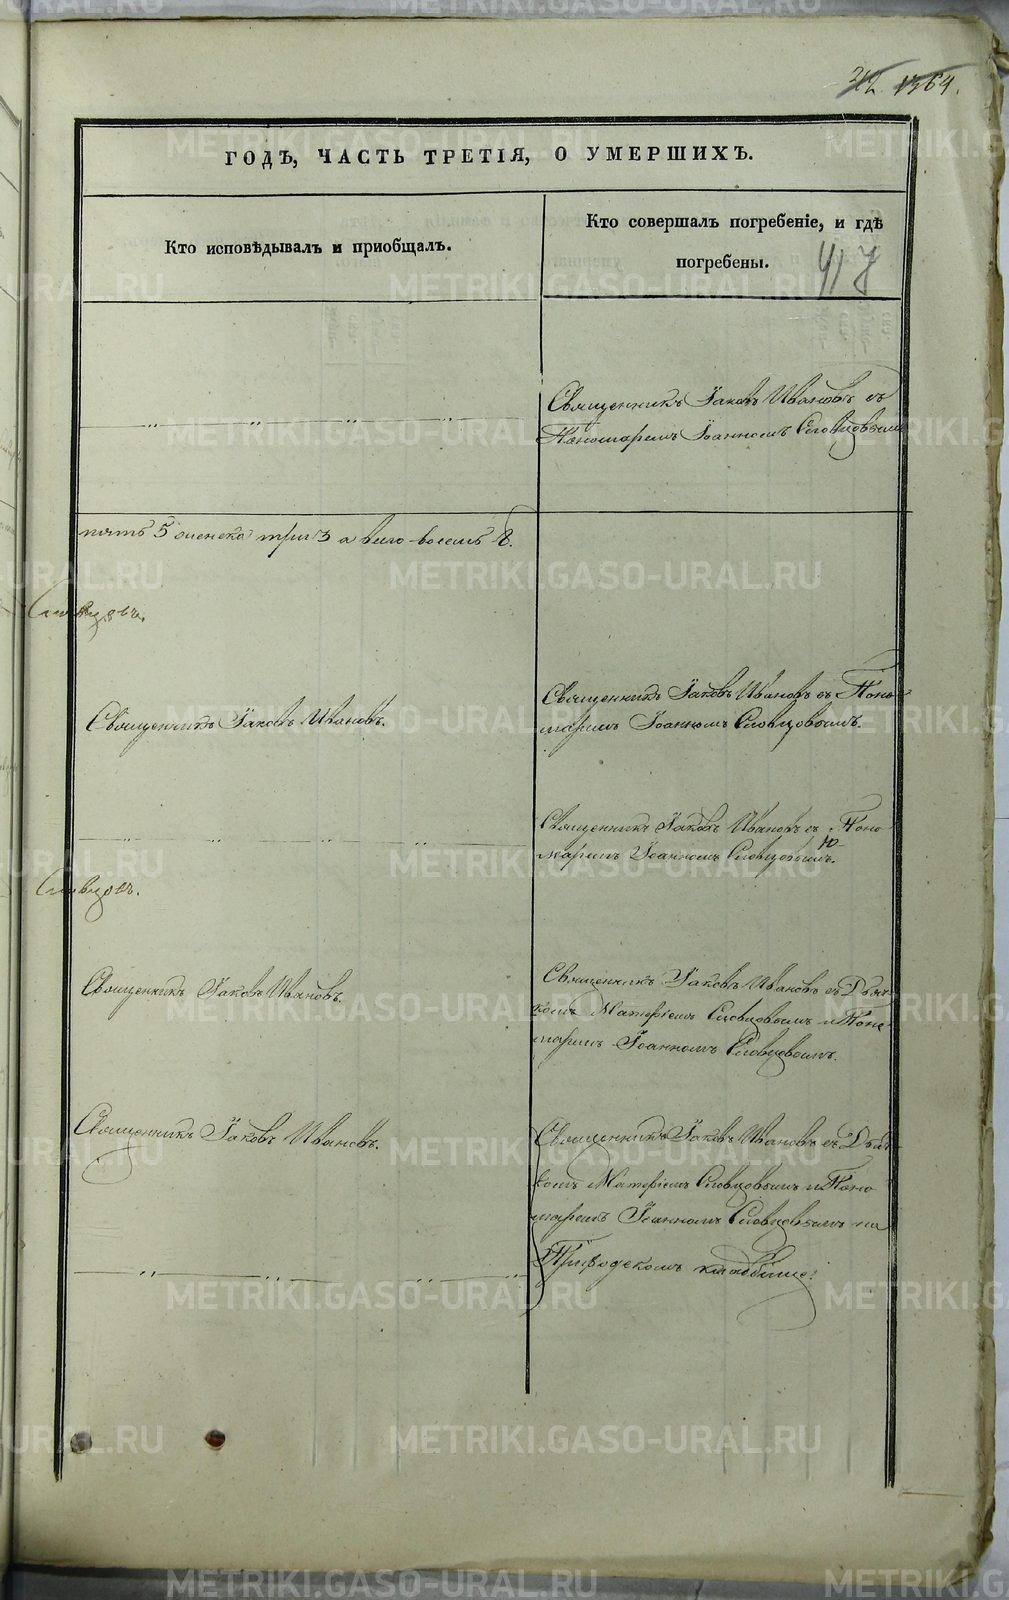 212. 1364.
ГОДЪ, ЧАСТЬ ТРЕТІЯ, О УМЕРШИХЪ.
Кто исповѣдывалъ и пріобщалъ.
Кто совершалъ погребеніе, и гдѣ
погребены.
417
Священникъ Іаковъ Ивановъ съ
Пономаремъ Іоанномъ Словцовымъ
пять 5 женска три 3 а всего восемь 8.
Словцовъ.
Священникъ Іаковъ Ивановъ.
Священникъ Іаковъ Ивановъ съ Поно-
маремъ Іоанномъ Словцовымъ.
Священникъ Іаковъ Ивановъ съ Поно
маремъ Іоанномъ Словцовымъ.
Словцовъ.
Священникъ Іаковъ Ивановъ.
Священникъ Іаковъ Ивановъ съ Дьяч-
комъ Матфіемъ Словцовымъ и Поно-
маремъ Іоанномъ Словцовымъ.
Священникъ Іаковъ Ивановъ.
Священникъ Іаковъ Ивановъ съ Дьяч-
комъ Матфіемъ Словцовымъ и Поно
маремъ Іоанномъ Словцовымъ на
Приходскомъ кладбище.
METRIKI.GASO-URAL.RU